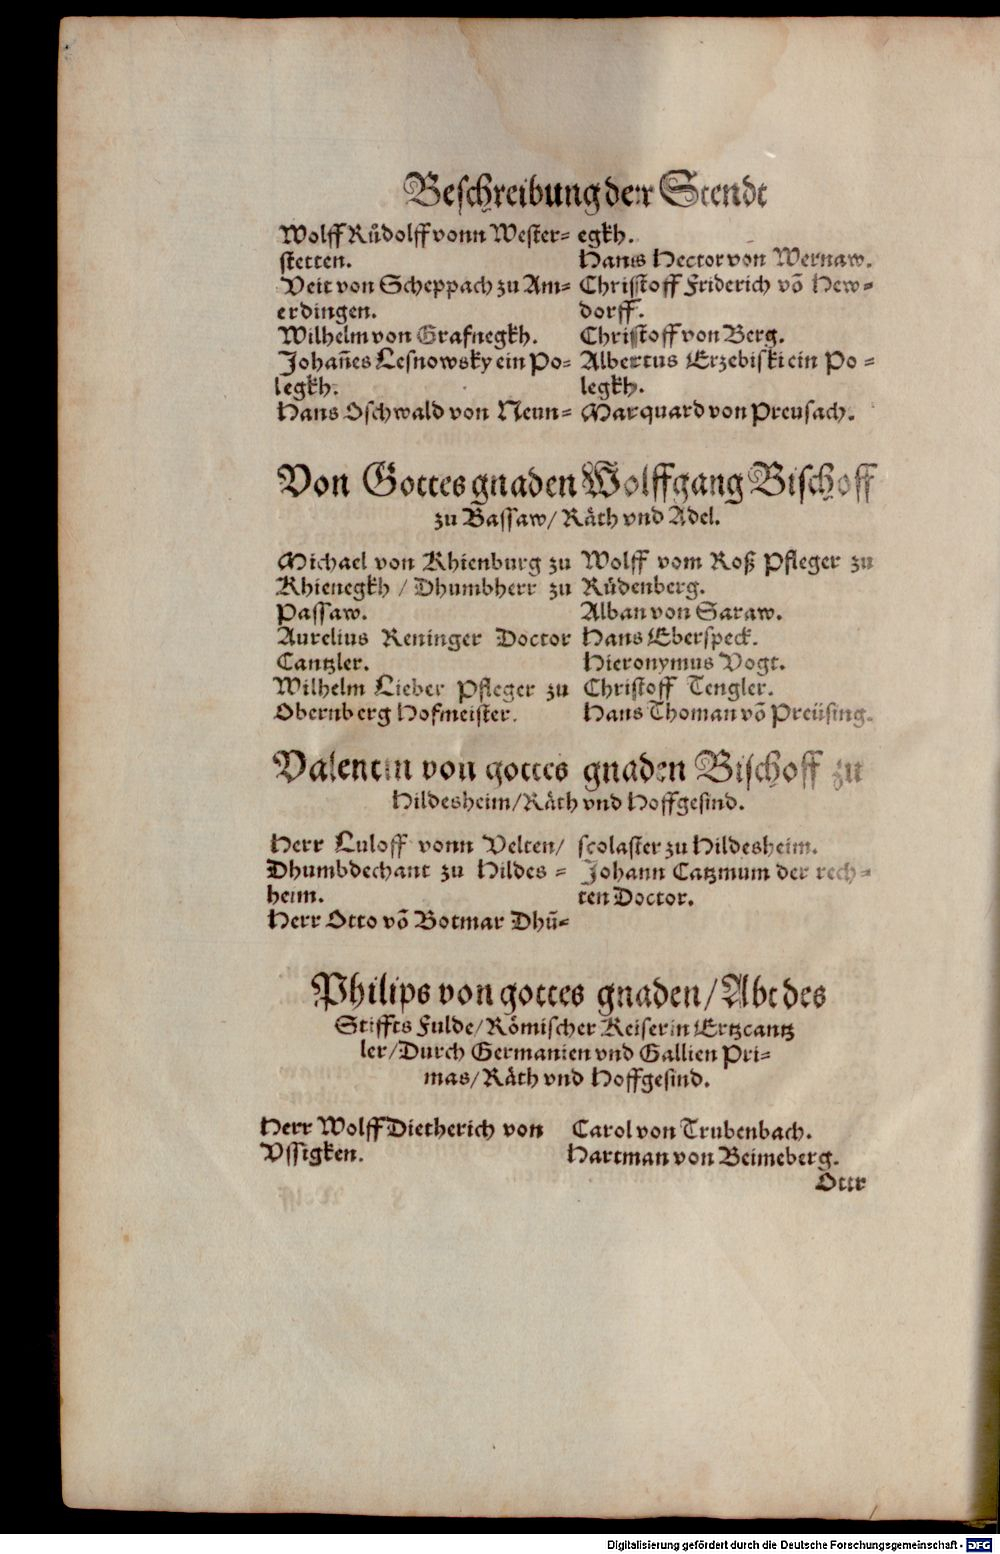 Beschreibung der Stendt
Wolff Růdolff vonn Wester-
stetten.
Veit von Scheppach zu Am-
erdingen.
Wilhelm von Grafnegkh.
Johañes Lesnowsky ein Po-
legkh.
Hans Oschwald von Neun-
egkh.
Hans Hector von Wernaw.
Christoff Friderich võ New-
dorff.
Christoff von Berg.
Albertus Erzebiski ein Po-
legkh.
Marquard von Preusach.
Von Gottes gnaden Wolffgang Bischoff
zu Bassaw/ Räth vnd Adel.
Michael von Khienburg zu
Khienegkh / Dhumbherr zu
Passaw.
Aurelius Reninger Doctor
Cantzler.
Wilhelm Lieber Pfleger zu
Obernberg Hofmeister.
Wolff vom Roß Pfleger zu
Rüdenberg.
Alban von Saraw.
Hans Eberspeck.
Hieronymus Vogt.
Christoff Tengler.
Hans Thoman võ Preüsing.
Valentin von gottes gnaden Bischoff zu
Hildesheim/Räth vnd Hoffgesind.
Herr Luloff vonn Velten/
Dhumbdechant zu Hildes-
heim.
Herr Otto võ Botmar Dhũ-
scolaster zu Hildesheim.
Johann Catzmum der rech-
ten Doctor.
Philips von gottes gnaden/Abt des
Stiffts Fulde/Römischer Keiserin Ertzcantz
ler/Durch Germanien vnd Gallien Pri-
mas/Räth vnd Hoffgesind.
Herr Wolff Dietherich von
Vssigken.
Carol von Trubenbach.
Hartman von Beimeberg.
Ottr
Digitalisierung gefördert durch die Deutsche Forschungsgemeinschaft - DFG